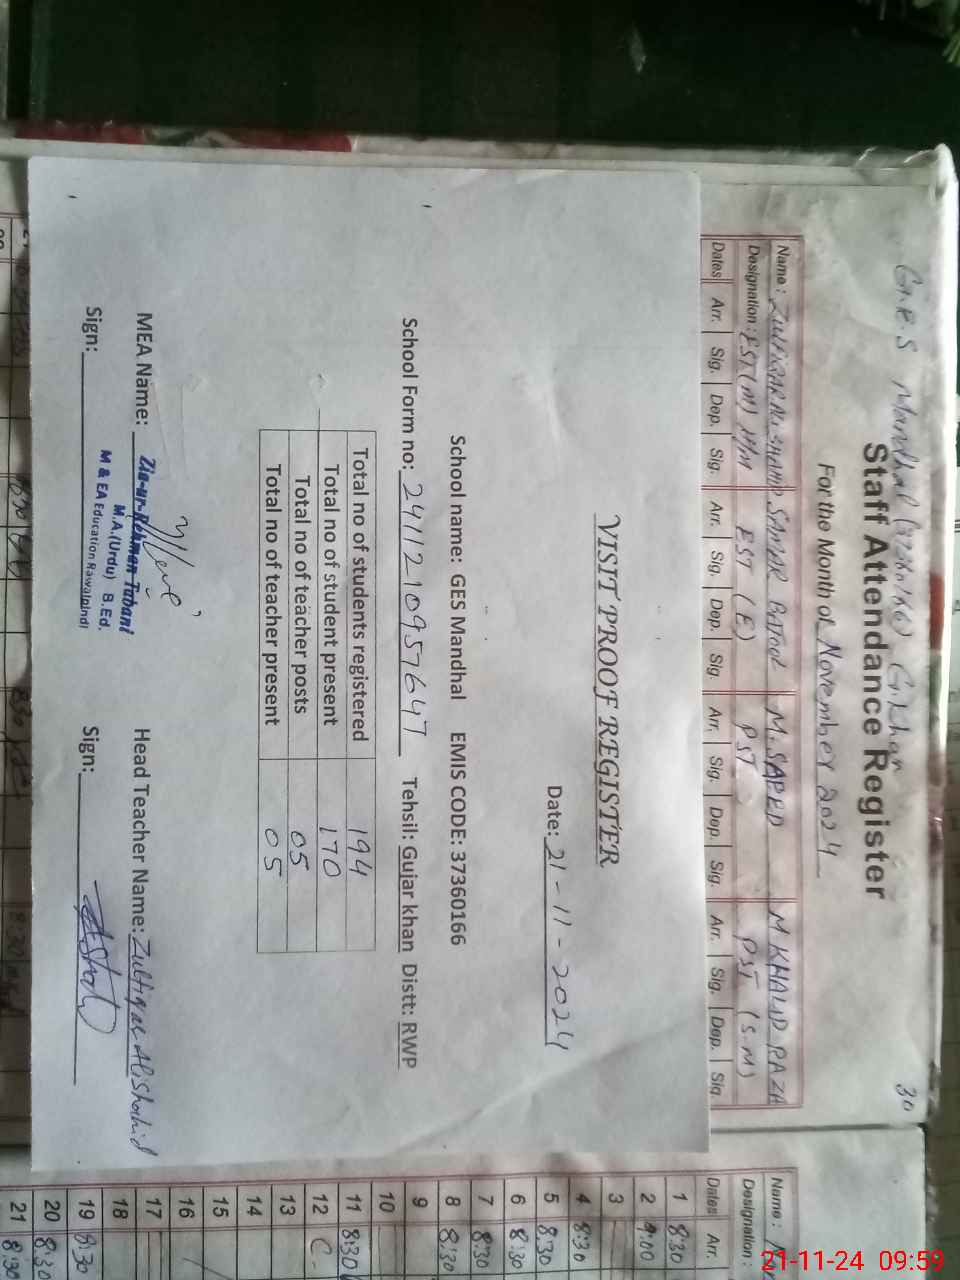 G.E.S Mandhal (37360166) G.Khan 30
Staff Attendance Register
For the Month of November 2024
Name: ZULFIQAR ALI SHAHID SAMAR BATOOL M. SAEED M KHALID RAZA
Designation: EST(M) H/M EST (E) PST PST (S.M)
Dates Arr. Sig. Dep. Sig. Arr. Sig. Dep. Sig. Arr. Sig. Dep. Sig. Arr. Sig. Dep. Sig.
VISIT PROOF REGISTER
Date: 21-11-2024
School name: GES Mandhal EMIS CODE: 37360166
School Form no: 2411210957647 Tehsil: Gujar khan Distt: RWP
Total no of students registered 194
Total no of student present 170
Total no of teacher posts 05
Total no of teacher present 05
MEA Name: Zia-ur-Rehman Tabani
M.A.(Urdu) B.Ed.
M & EA Education Rawalpindi
Sign:
Head Teacher Name: Zulfiqar Ali Shahid
Sign:
Name:
Designation:
Dates Arr.
1 8:30
2 9:00
3
4 8:30
5 8:30
6 8:30
7 8:30
8 8:30
9
10
11 8:30
12 C-
13
14
15
16
17
18
19 8:30
20 8:30
21 8:30
21-11-24 09:59